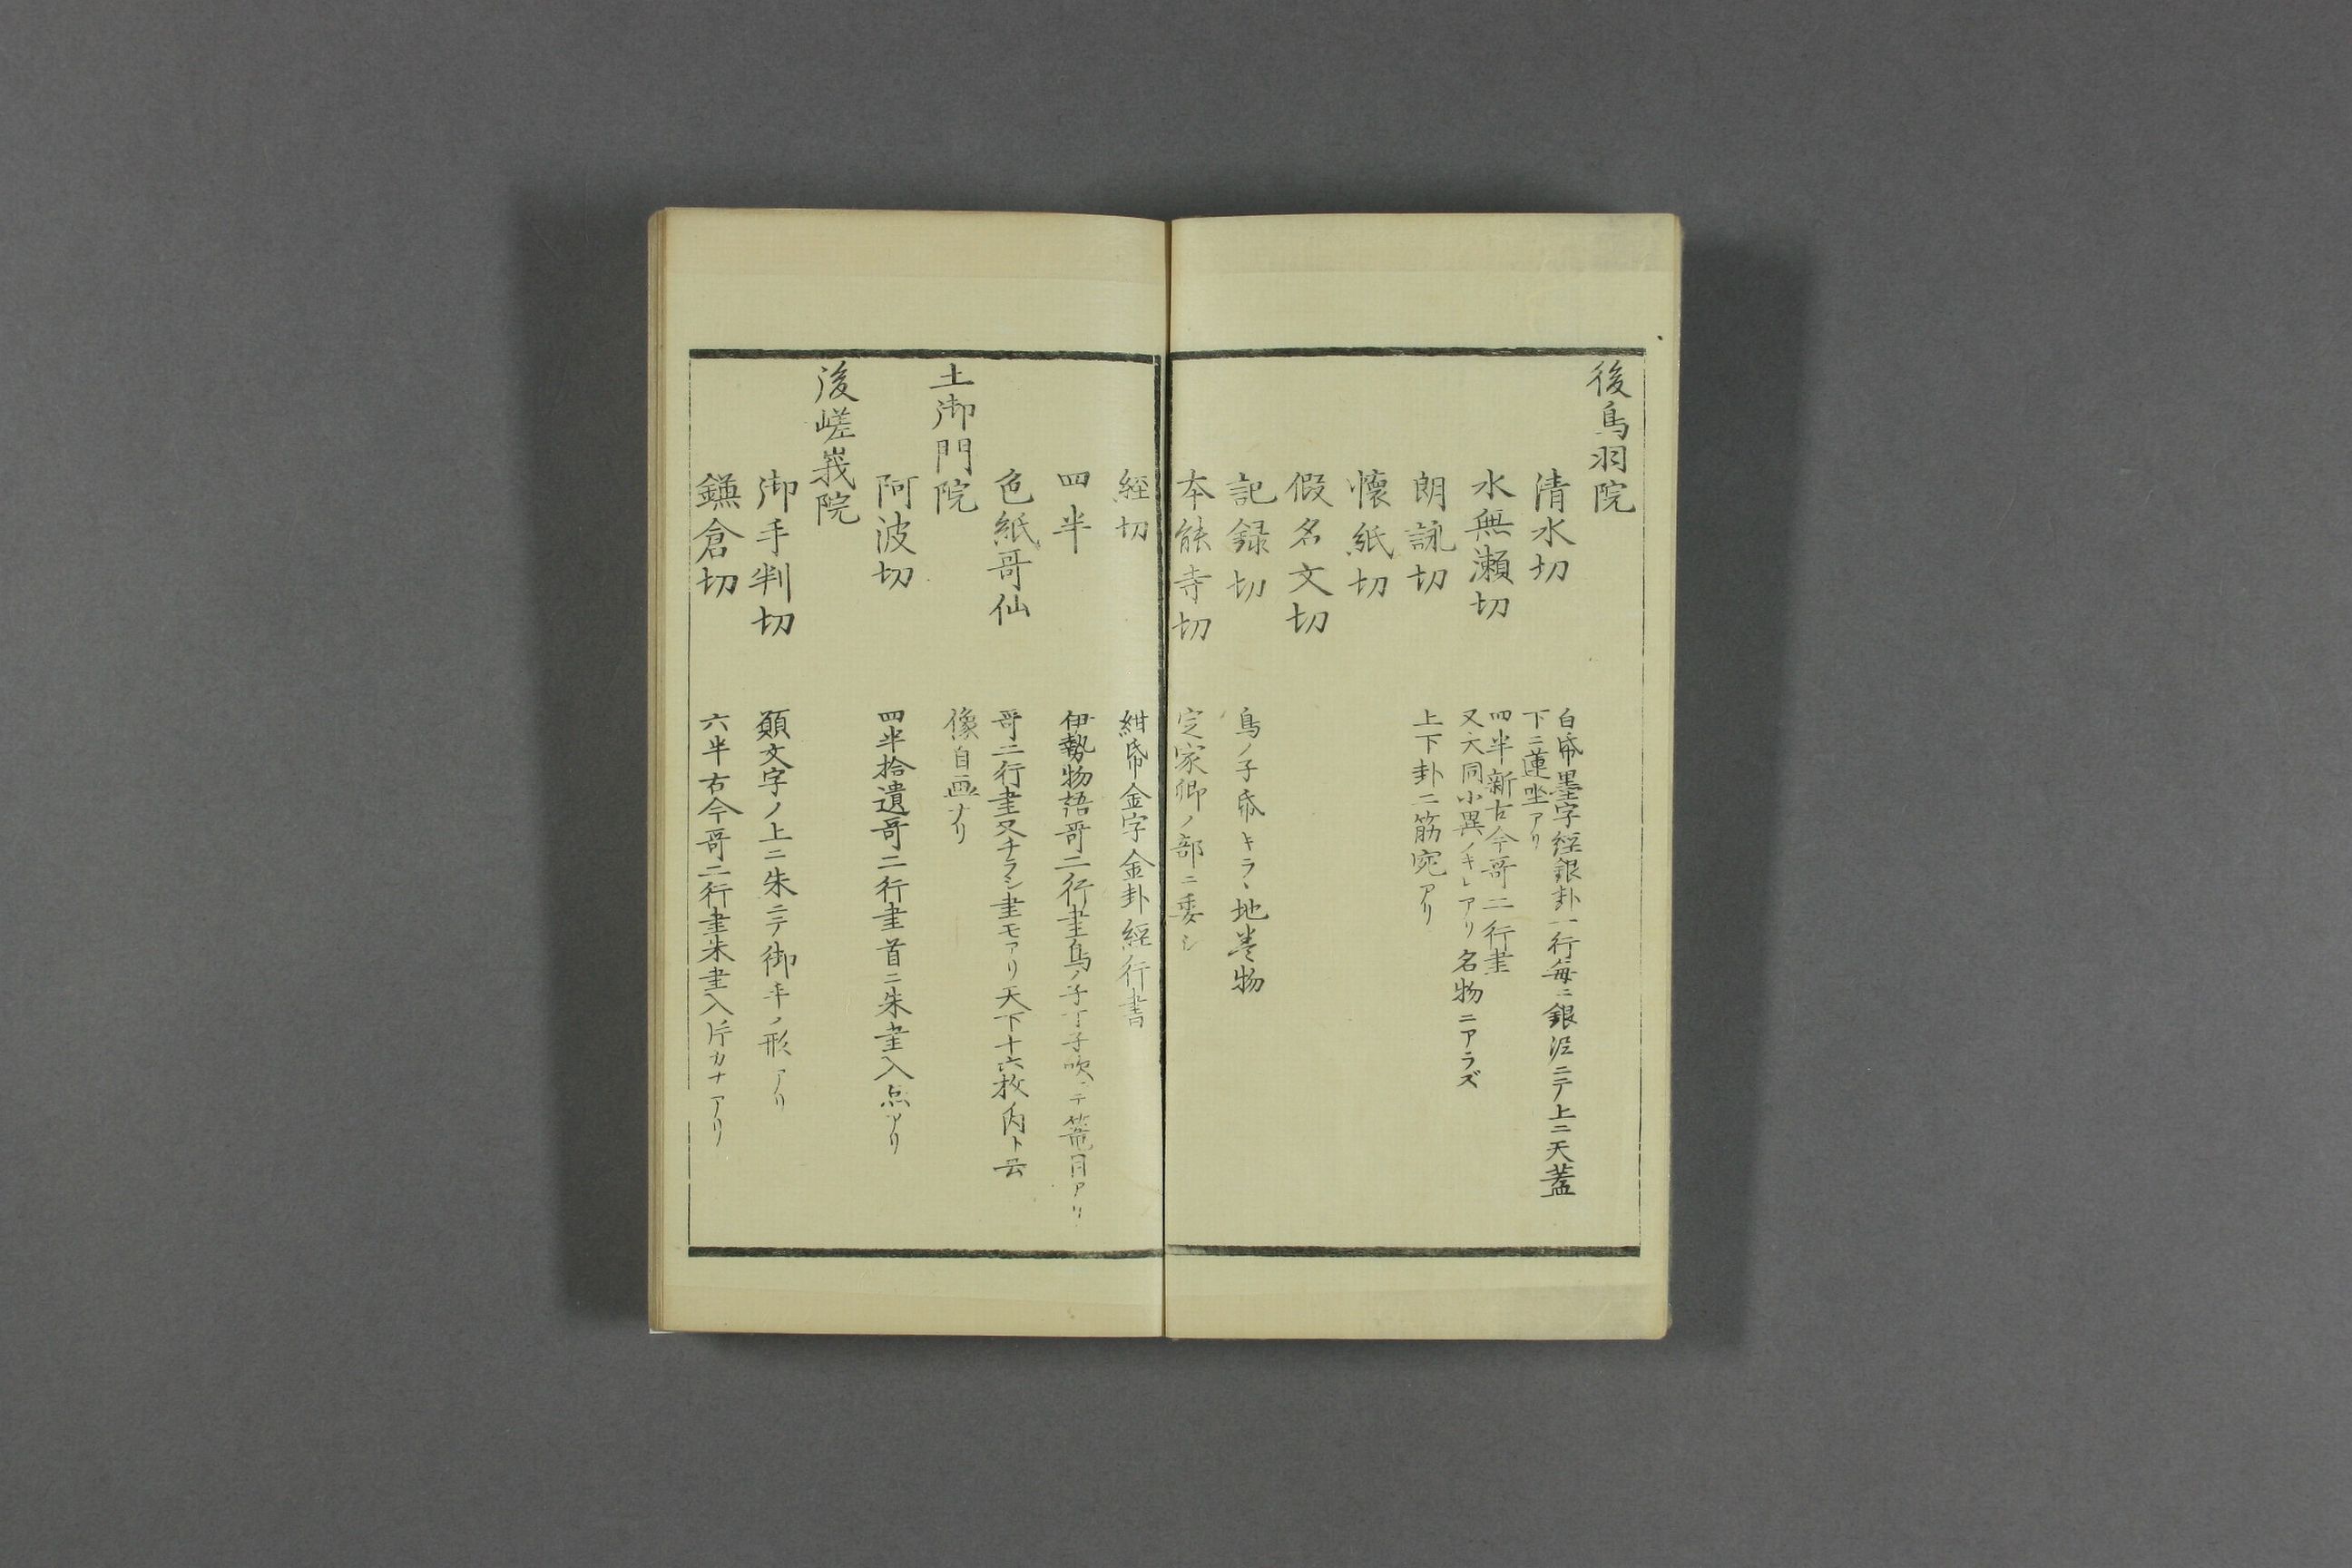 後鳥羽院
清水切
白帋墨字経銀卦一行毎ニ銀泥ニテ上ニ天蓋
下ニ蓮坐アリ
水無瀬切
四半新古今哥二行書
又大同小異ノキレアリ名物ニアラズ
朗詠切
上下卦二筋宛アリ
懐紙切
假名文切
記録切
鳥ノ子帋キラヽ地巻物
本能寺切
定家卿ノ部ニ委シ
経切
紺帋金字金卦経行書
四半
伊勢物語哥二行書鳥ノ子丁子吹ニテ篭目アリ
色紙哥仙
哥二行書又チラシ書モアリ天下十六枚内ト云
像自画ナリ
土御門院
阿波切
四半拾遺哥二行書首ニ朱書入点アリ
後嵯峩院
御手判切
願文字ノ上ニ朱ニテ御手ノ形アリ
鎌倉切
六半古今哥二行書朱書入片カナアリ